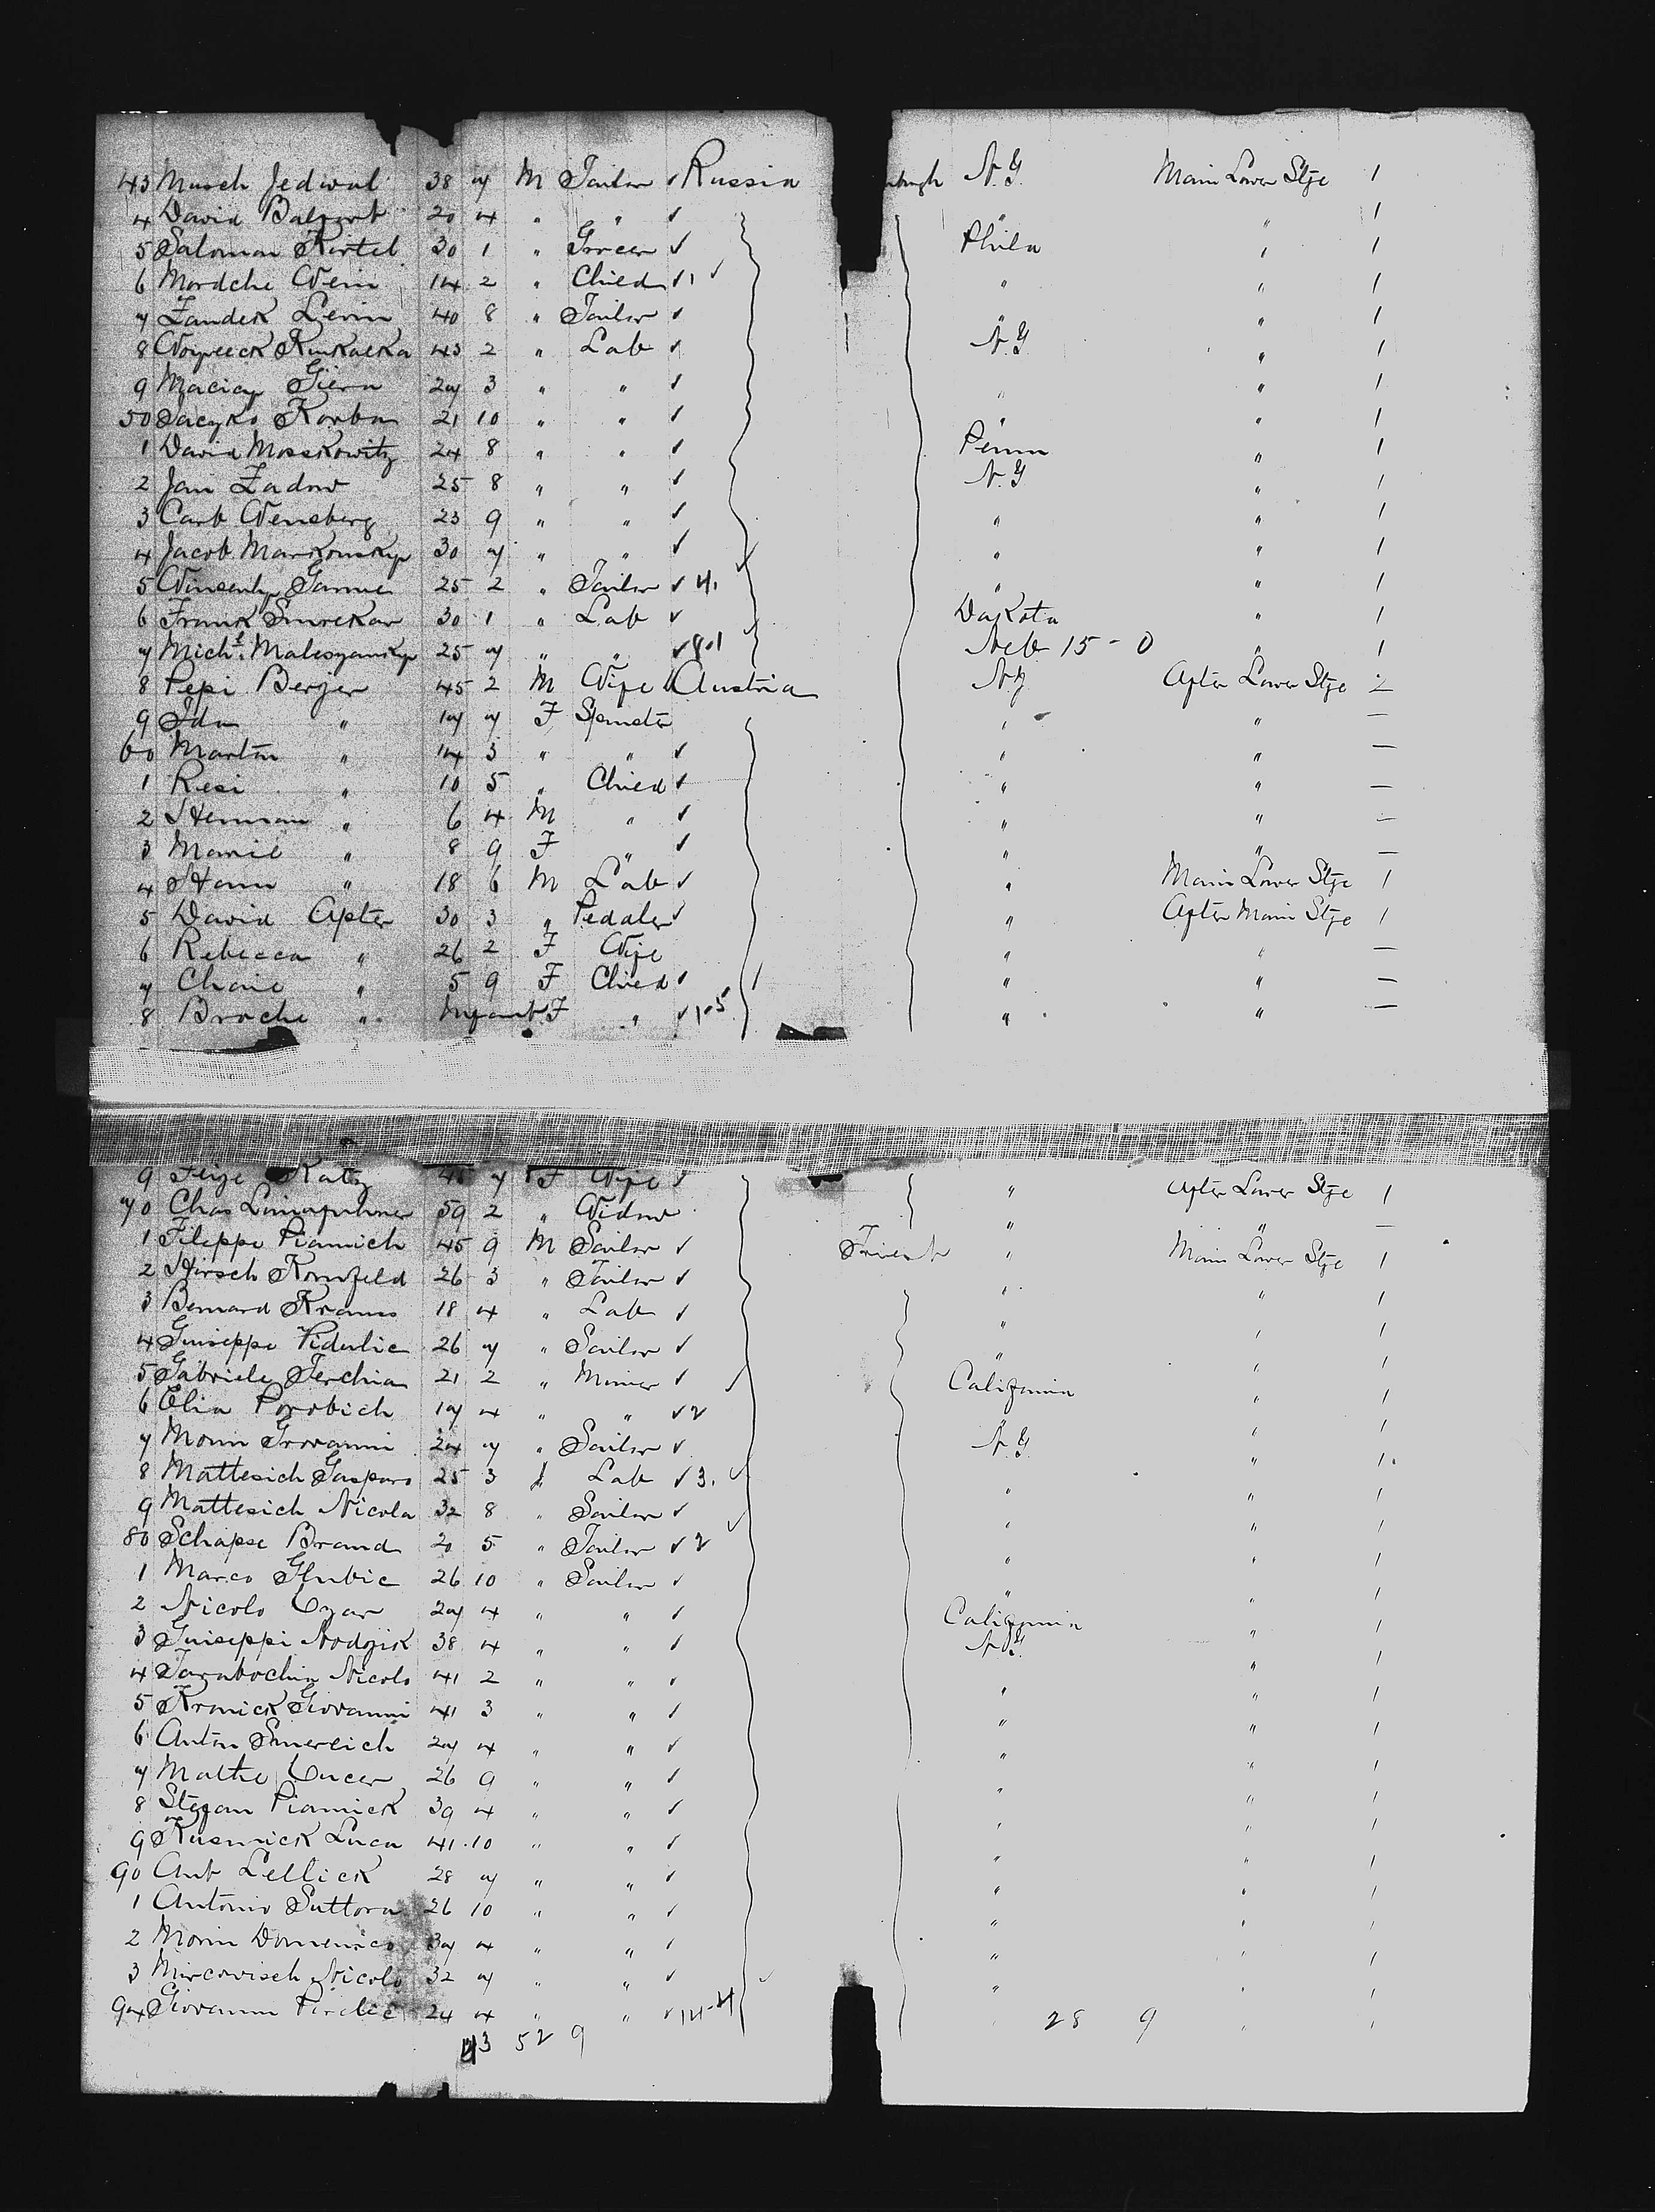 43 Musch Jedwal 38 7 M Tailor Russia N.Y. Main Lower Stge 1
4 David 20 4 " " " " 1
5 Saloman Kirtel 30 1 " Grocer Phila " 1
6 Mordche Wein 14 2 " Child 1 " " 1
7 Zandek Levin 40 8 " Tailor " " 1
8 43 2 " Lab N.Y. " 1
9 Maciaj Giera 27 3 " " " " 1
50 Korban 21 10 " " " " 1
1 David Mosskowitz 24 8 " " Penn " 1
2 Jan Zadow 25 8 " " N.Y. " 1
3 Carl Wensberg 23 9 " " " " 1
4 Jacob Markonsky 30 7 " " " " 1
5 Vinsenty 25 2 " Tailor 4. " " 1
6 Frank Smrekar 30 1 " Lab Dakota " 1
7 Mich.l 25 7 " " 8.1 Neb 15 - 0 " 1
8 Pepi Berger 45 2 M Wife Austria N.Y. After Lower Stge 2
9 Ida " 17 7 F Spinster " " —
60 Martin " 14 3 " " " " —
1 Resi " 10 5 " Child " " —
2 Herman " 6 4 M " " " —
3 Marie " 8 9 F " " " —
4 Hann " 18 6 M Lab " Main Lower Stge 1
5 David Apter 30 3 " Pedaler " After Main Stge 1
6 Rebecca " 26 2 F Wife " " —
7 Chaie " 5 9 F Child " " —
8 Broche " Infant F " 1-5 " " —
9 Feige Katz 45 7 F Wife " After Lower Stge 1
70 Chas 59 2 " Widow " " —
1 Fileppe Piamich 45 9 M Sailor Triest " Main Lower Stge 1
2 Hirsch Kornfeld 26 3 " Tailor " " 1
3 Bernard Kraus 18 4 " Lab " " 1
4 Guiseppe Vidulic 26 7 " Sailor " " 1
5 Gabriele Terchia 21 2 " Miner California " 1
6 Elia Porobich 17 4 " " 2 " " 1
7 Morin Giovanni 24 7 " Sailor N.Y. " 1
8 Mattesich Gasparo 25 3 " Lab 3. " " 1
9 Mattesich Nicola 32 8 " Sailor " " 1
80 Schapse Brand 20 5 " Tailor 2 " " 1
1 Marco Glubic 26 10 " Sailor " " 1
2 Nicolo 27 4 " " California " 1
3 Guiseppi 38 4 " " N.Y. " 1
4 Tarabochia Nicolo 41 2 " " " " 1
5 Kranick Giovanni 41 3 " " " " 1
6 Anton Smereich 27 4 " " " " 1
7 Mathe 26 9 " " " " 1
8 Stefan Piamick 39 4 " " " " 1
9 Rusmick Luca 41 10 " " " " 1
90 Ant Lellick 28 7 " " " " 1
1 Antonio Suttora 26 10 " " " " 1
2 Morin Domenico 37 4 " " " " 1
3 Mircovisch Nicolo 32 7 " " " " 1
94 Giovanni 24 4 " " 14-4 28 9 " 1
43 52 9